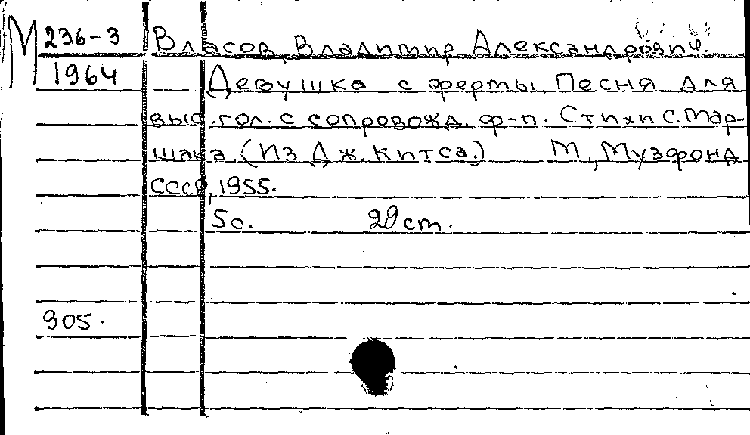 М 236-3 Власов, Владимир Александрович.
1964 Девушка с фермы. Песня для
выс. гол. с сопровожд. ф-п. Стихи С. Мар-
шака. (Из Дж. Китса.) М., Музфонд
СССР, 1955.
5 с. 29 cm.
905.